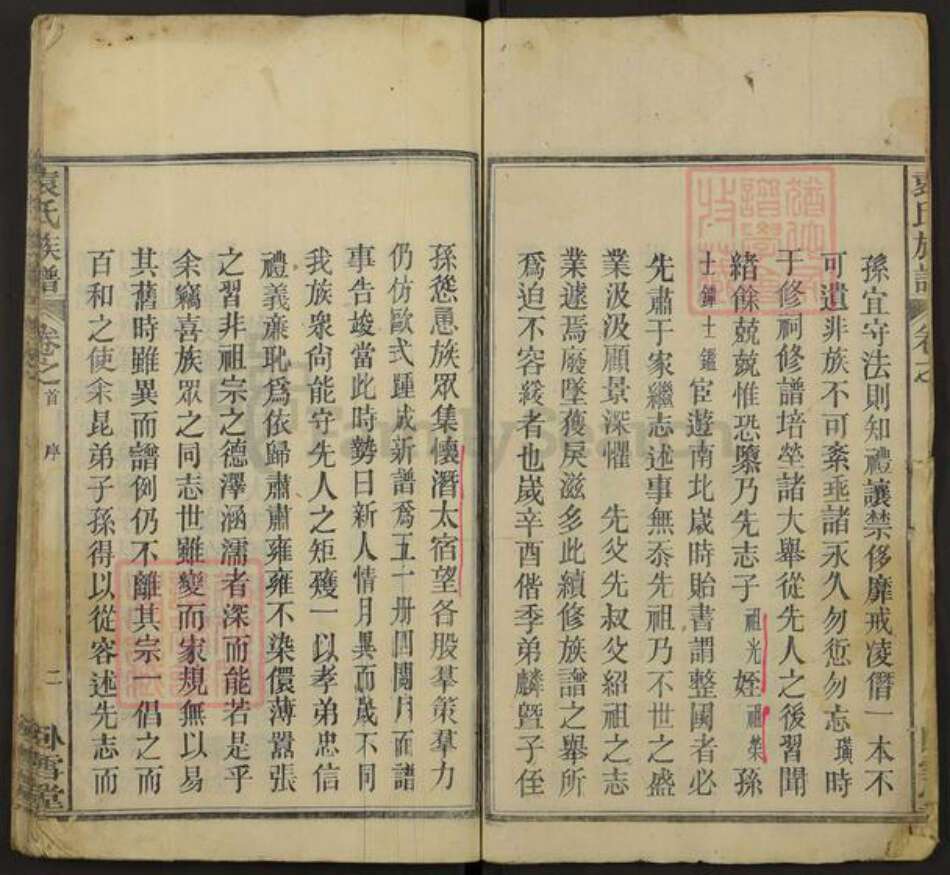 孫宜守法則知禮讓禁侈靡戒凌僭一本不
可遺非族不可紊垂諸永久勿愆勿忘璜時
于修祠修譜培塋諸大舉從先人之後習聞
緒餘兢兢惟恐隳乃先志子祖光姪祖榮孫
士鐔士鑑宦遊南北歲時貽書謂整國者必
先肅于家繼志述事無忝先祖乃不世之盛
業汲汲顧景深懼 先父先叔父紹祖之志
業遽焉廢墜獲戾滋多此續修族譜之舉所
爲迫不容緩者也歲辛酉偕季弟麟暨子侄
孫慫恿族眾集懷潛太宿望各股羣策羣力
仍仿歐式踵成新譜爲五十册四閱月而譜
事告竣當此時勢日新人情月異而歲不同
我族衆尙能守先人之矩矱一以孝弟忠信
禮義亷耻爲依歸肅肅雍雍不染儇薄囂張
之習非祖宗之德澤涵濡者深而能若是乎
余竊喜族眾之同志世雖變而家規無以易
其舊時雖異而譜例仍不離其宗一倡之而
百和之使余昆弟子孫得以從容述先志而
袁氏族譜
卷之首
序
二
臥雪堂